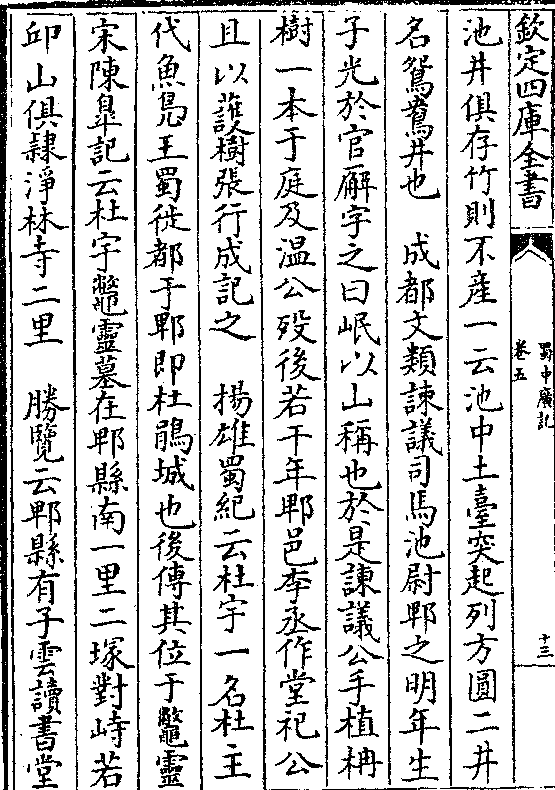 欽定四庫全書
蜀中廣記
卷五
十三
池井俱存竹則不産一云池中土臺突起列方圓二井
名鴛鴦井也　成都文類諫議司馬池尉郫之明年生
子光於官廨字之曰岷以山稱也於是諫議公手植柟
樹一本于庭及温公殁後若干年郫邑李丞作堂祀公
且以䕶樹張行成記之　揚雄蜀紀云杜宇一名杜主
代魚鳧王蜀徙都于郫即杜鵑城也後傳其位于鼈靈
宋陳臯記云杜宇鼈靈墓在郫縣南一里二塚對峙若
邱山俱隷淨林寺二里　勝覽云郫縣有子雲讀書堂